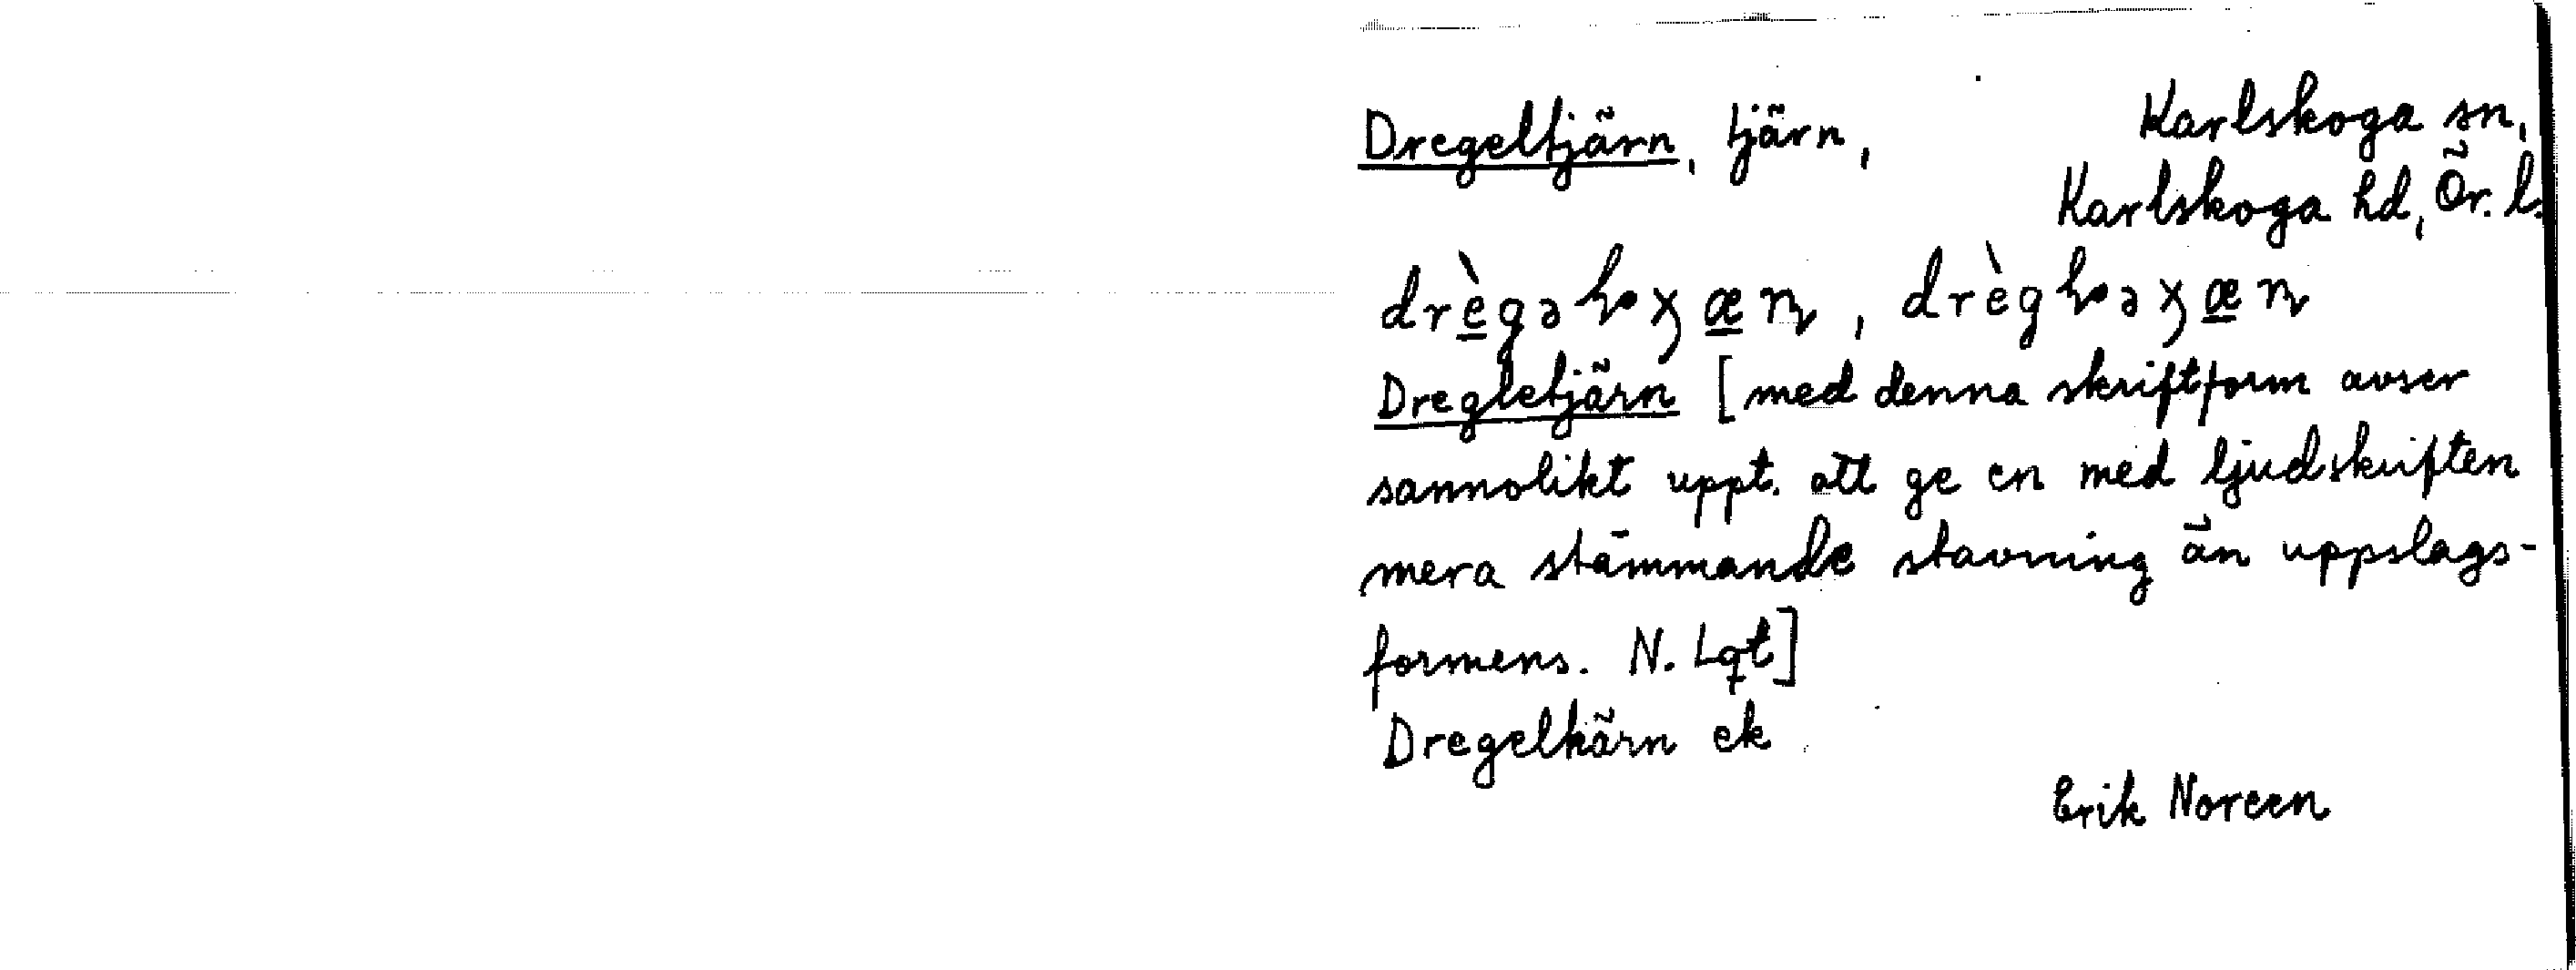 Dregeltjärn, tjärn, Karlskoga sn,
Karlskoga hd, Ör. l.
Dregletjärn [med denna skriftform avser
sannolikt uppt. att ge en med ljudskriften
mera stämmande stavning än uppslags-
formens. N. Lqt]
Dregelkärn ek
Erik Noreen